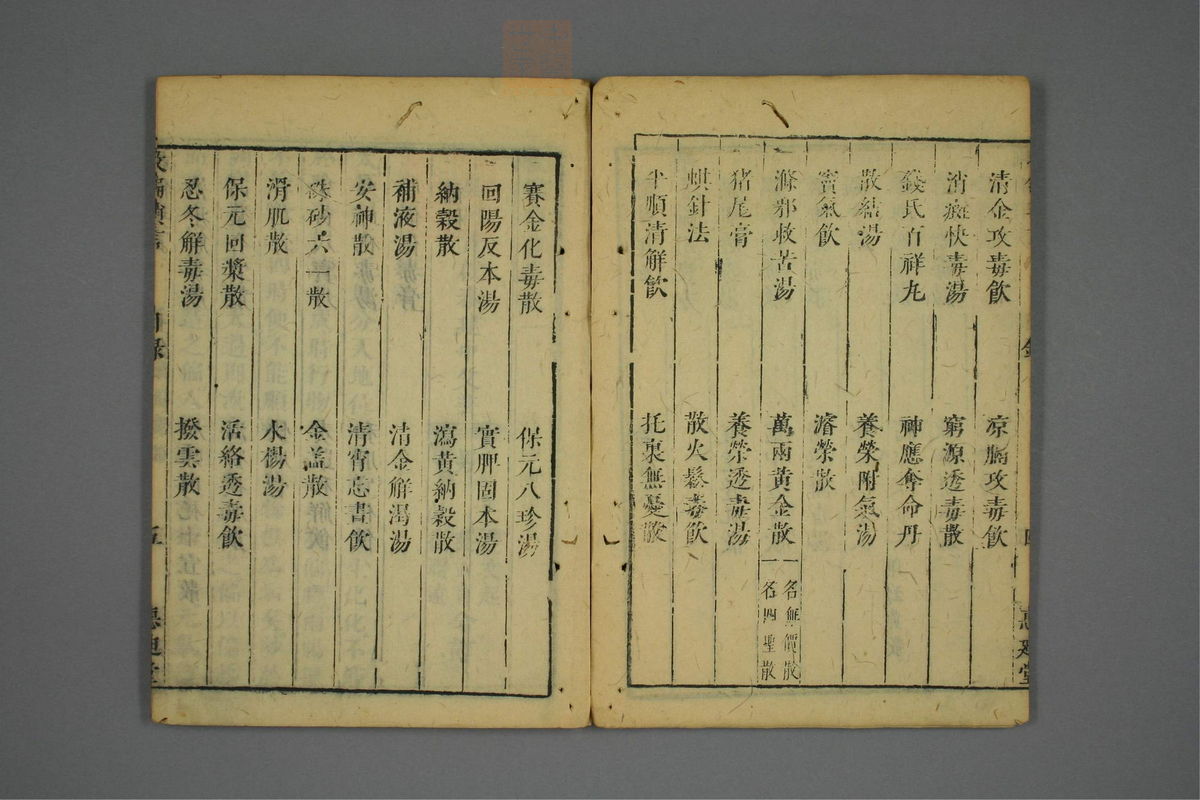 清金攻毒飲
凉膈攻毒飲
消癍快毒湯
窮源透毒散
錢氏百祥丸
神應奪命丹
散結湯
養榮附氣湯
實氣飲
濬榮散
滌邪救苦湯
萬兩黃金散
一名無價散
一名四聖散
猪尾膏
養榮透毒湯
蜞針法
散火鬆毒飲
平順清解飲
托裏無憂散
賽金化毒散
保元八珍湯
回陽反本湯
實脾固本湯
納穀散
瀉黃納穀散
補液湯
清金解渴湯
安神散
清宵忘書飲
硃砂六一散
金盖散
滑肌散
水楊湯
保元回漿散
活絡透毒飲
忍冬解毒湯
撥雲散
目錄
五
惠迪堂